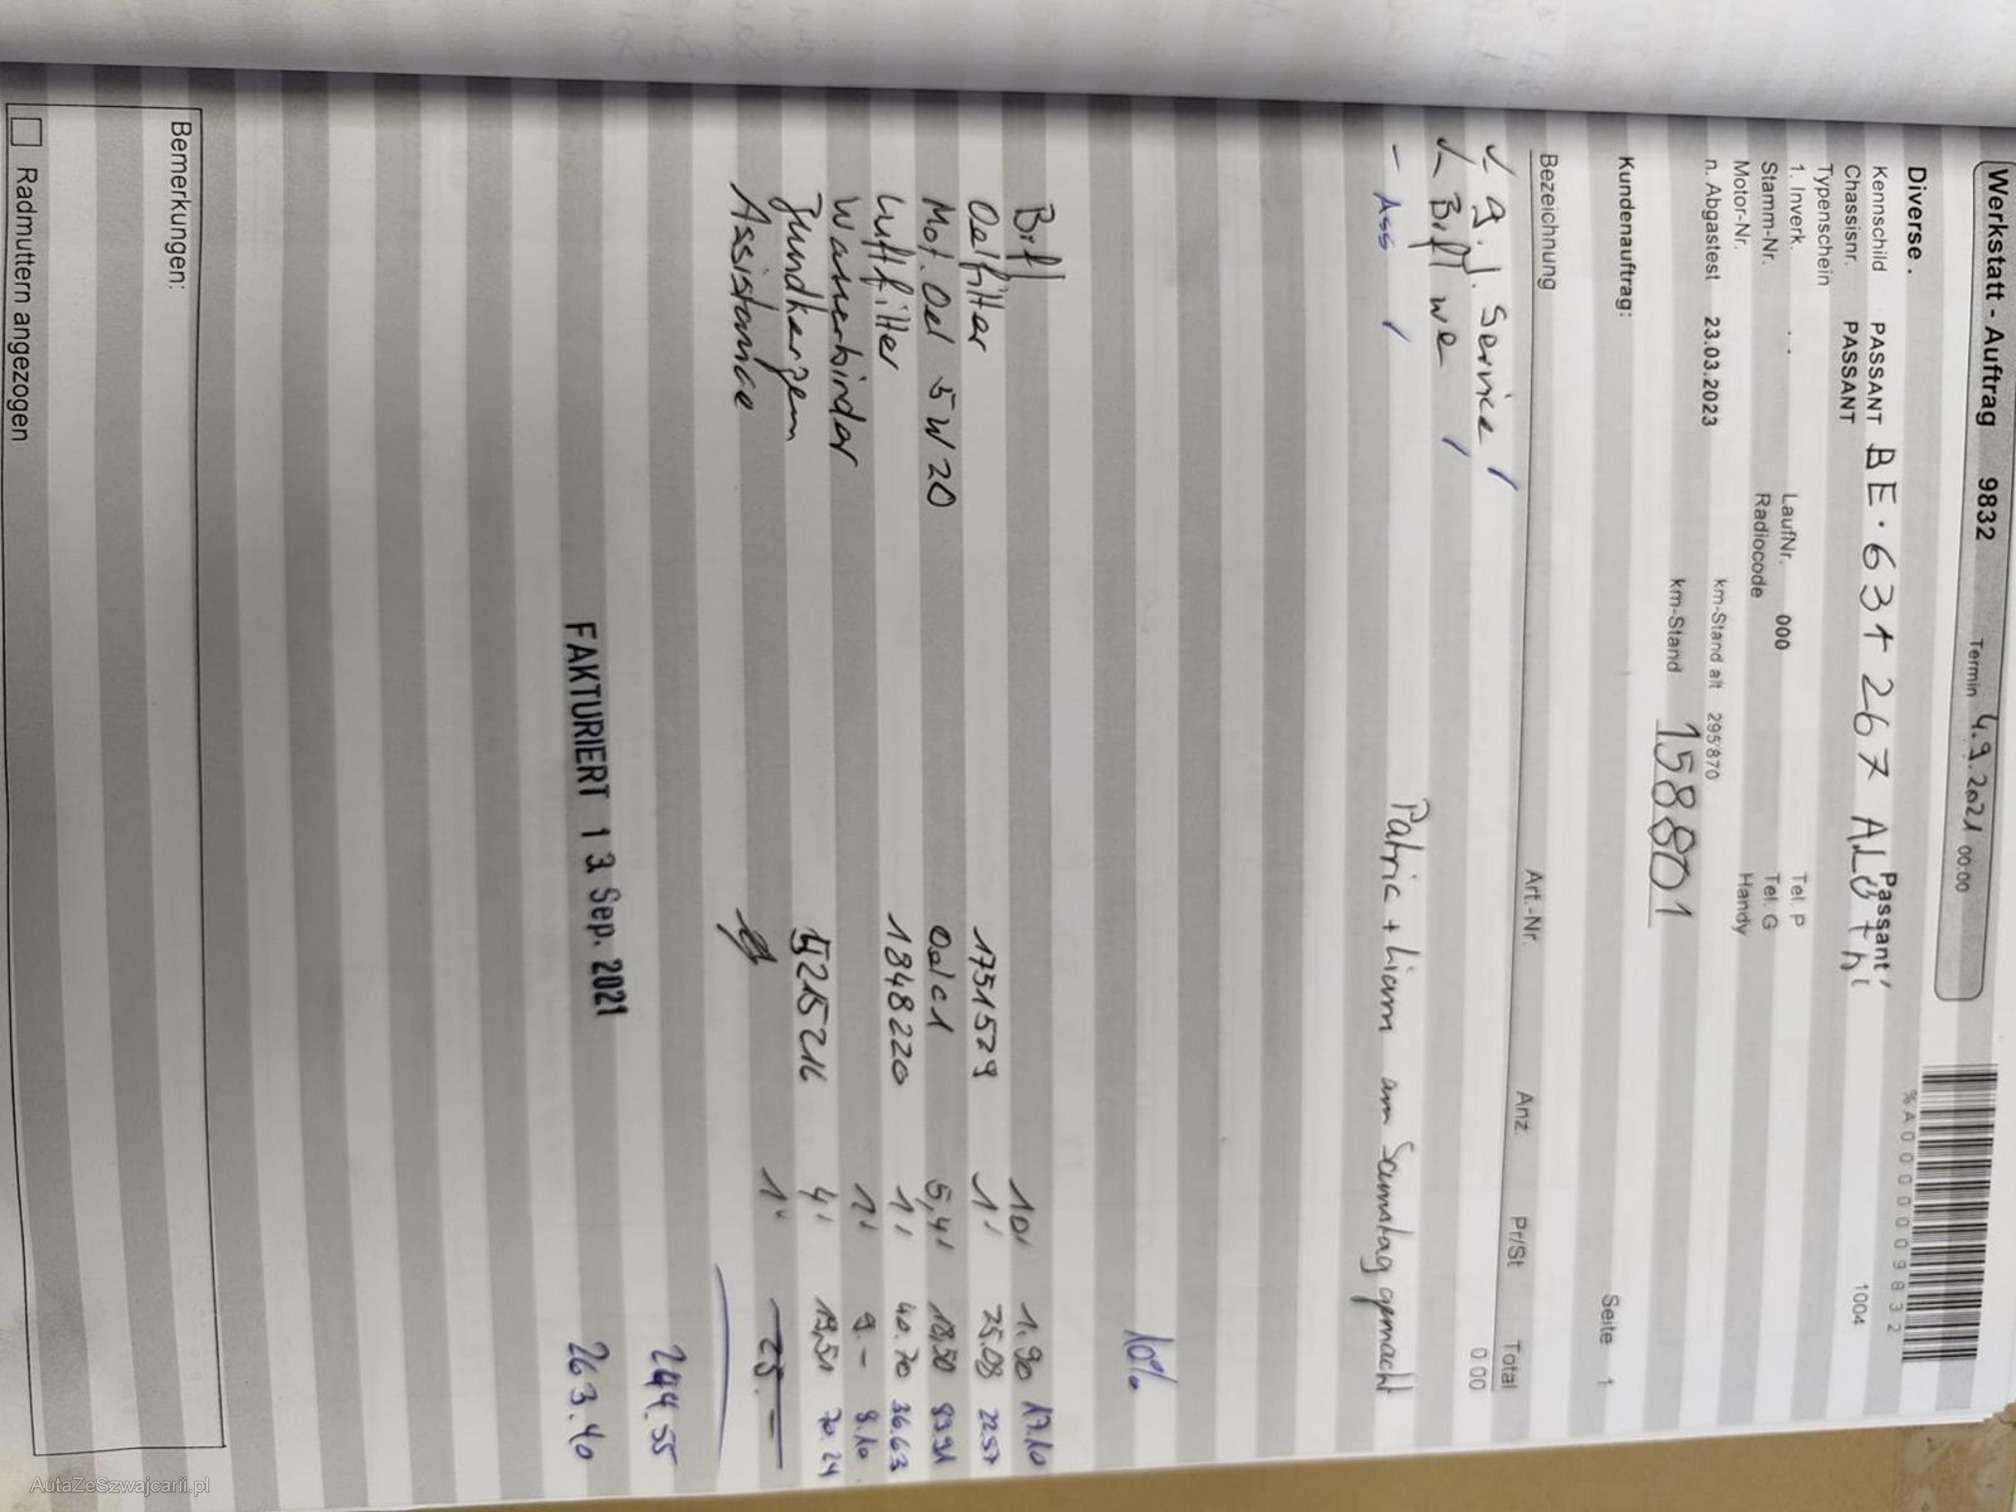 Werkstatt - Auftrag 9832 Termin 4.9.2021 00:00
%A0000009832
Diverse .
Kennschild PASSANT BE·631 267 Passant
Chassisnr. PASSANT 1004
Typenschein
1. Inverk. . . LaufNr. 000 Tel. P
Stamm-Nr. Radiocode Tel. G
Motor-Nr. Handy
n. Abgastest 23.03.2023 km-Stand alt 295'870
km-Stand 158801
Kundenauftrag: Seite 1
Bezeichnung Art.-Nr. Anz. Pr/St Total
0.00
g. J. Service
Brfl we
- Ass
Patric + Liam am Samstag gemacht
10%
Brfl 10 1.90 17.10
Oelfilter 1751529 1 25.08 22.57
Mot. Oel 5W20 Oelc1 5,4 18,50
Luftfilter 1848220 1 40.70 36.63
1 9.- 8.10
Zundkerzen 5215216 4 19,51 70.24
Assistance 1 25.-
244.55
FAKTURIERT 13. Sep. 2021
263.40
Bemerkungen:
Radmuttern angezogen
AutaZeSzwajcarii.pl